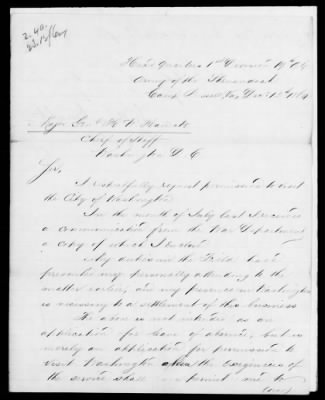 Head Quarters 1st Division 19th
Army of the Shenandoah
Camp Va Dec 13th 1864
Major Genl H W Halleck
Chief of Staff
Washington D. C.
Sir,
I respectfully request permission to visit
the City of Washington
In the month of July last I received
a communication from the War Department
a copy of which I enclose
My duties in the Field have
prevented my personally attending to the
matter earlier, and my presence in Washington
is necessary to a settlement of this business
The above is not intended as an
application for leave of absence, but is
merely an application for permission to
visit Washington when the exigencies of
the service shall permit me to